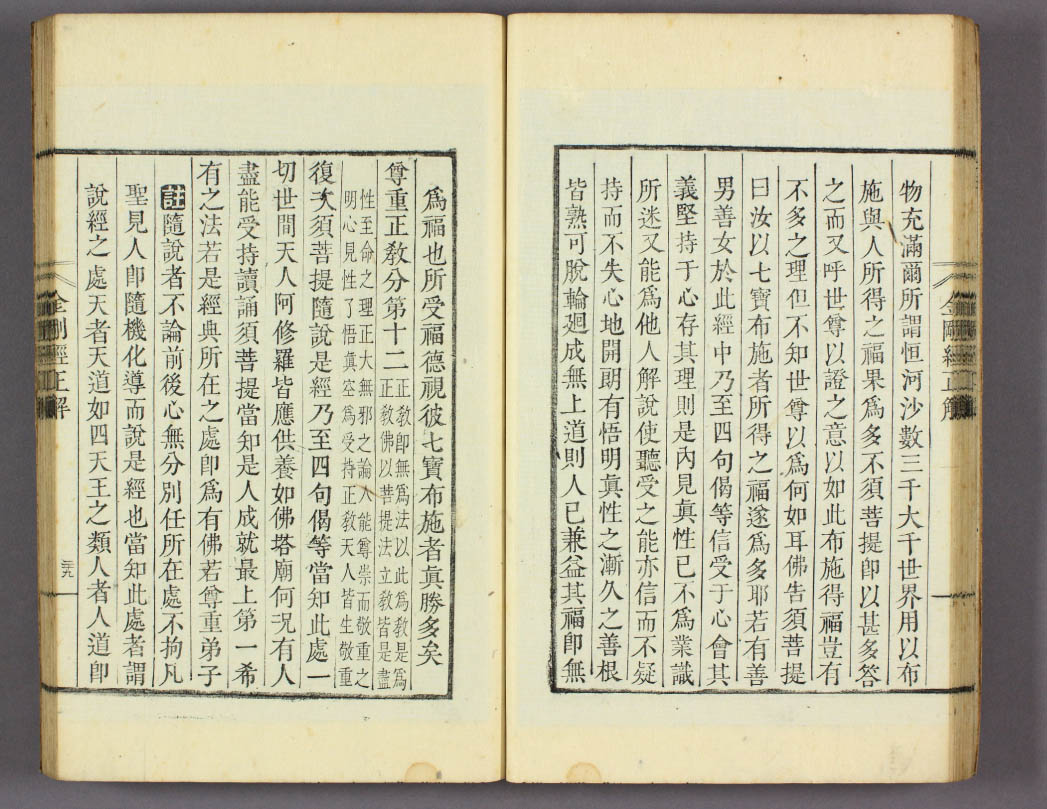 物充滿爾所謂恒河沙數三千大千世界用以布
施與人所得之福果爲多不須菩提卽以甚多答
之而又呼世尊以證之意以如此布施得福豈有
不多之理但不知世尊以爲何如耳佛告須菩提
曰汝以七寶布施者所得之福遂爲多耶若有善
男善女於此經中乃至四句偈等信受于心會其
義堅持于心存其理則是內見眞性已不爲業識
所迷又能爲他人解說使聽受之能亦信而不疑
持而不失心地開朗有悟明眞性之漸久之善根
皆熟可脫輪廻成無上道則人已兼益其福卽無
金剛經正解
爲福也所受福德視彼七寶布施者眞勝多矣
尊重正敎分第十二
正敎卽無爲法以此爲敎是爲
正敎佛以菩提法立敎皆是盡
性至命之理正大無邪之論人能尊崇而敬重之
明心見性了悟眞空爲受持正敎天人皆生敬重
復次須菩提隨說是經乃至四句偈等當知此處一
切世間天人阿修羅皆應供養如佛塔廟何況有人
盡能受持讀誦須菩提當知是人成就最上第一希
有之法若是經典所在之處卽爲有佛若尊重弟子
註隨說者不論前後心無分別任所在處不拘凡
聖見人卽隨機化導而說是經也當知此處者謂
說經之處天者天道如四天王之類人者人道卽
金剛經正解
三九